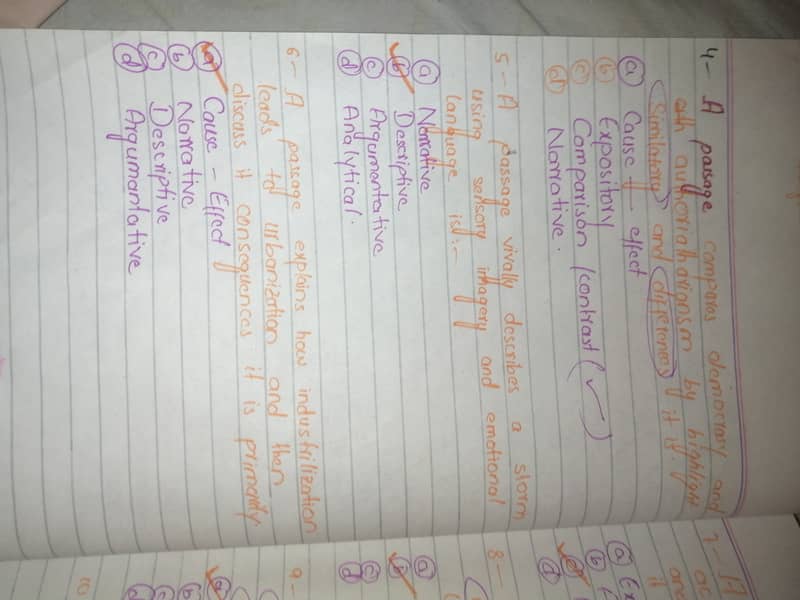 4- A passage compares democracy and
auth authoritharionism by highlight
Similatory and differences it is.
a Cause - effect
b Expository
c Comparison / contrast (✓)
d Narrative.
5- A passage vivally describes a storm
using sensory imagery and emotional
language is:-
a Narrative
b Descriptive
c Argumentative
d Analytical.
6- A passage explains how industrilization
leads to urbanization and then
discuss it consequences it is primarily
a Cause - Effect
b Narrative
c Descriptive
d Argumantative
7- A
a
b
d
8-
a
b
c
d
9-
a
b
c
d
10